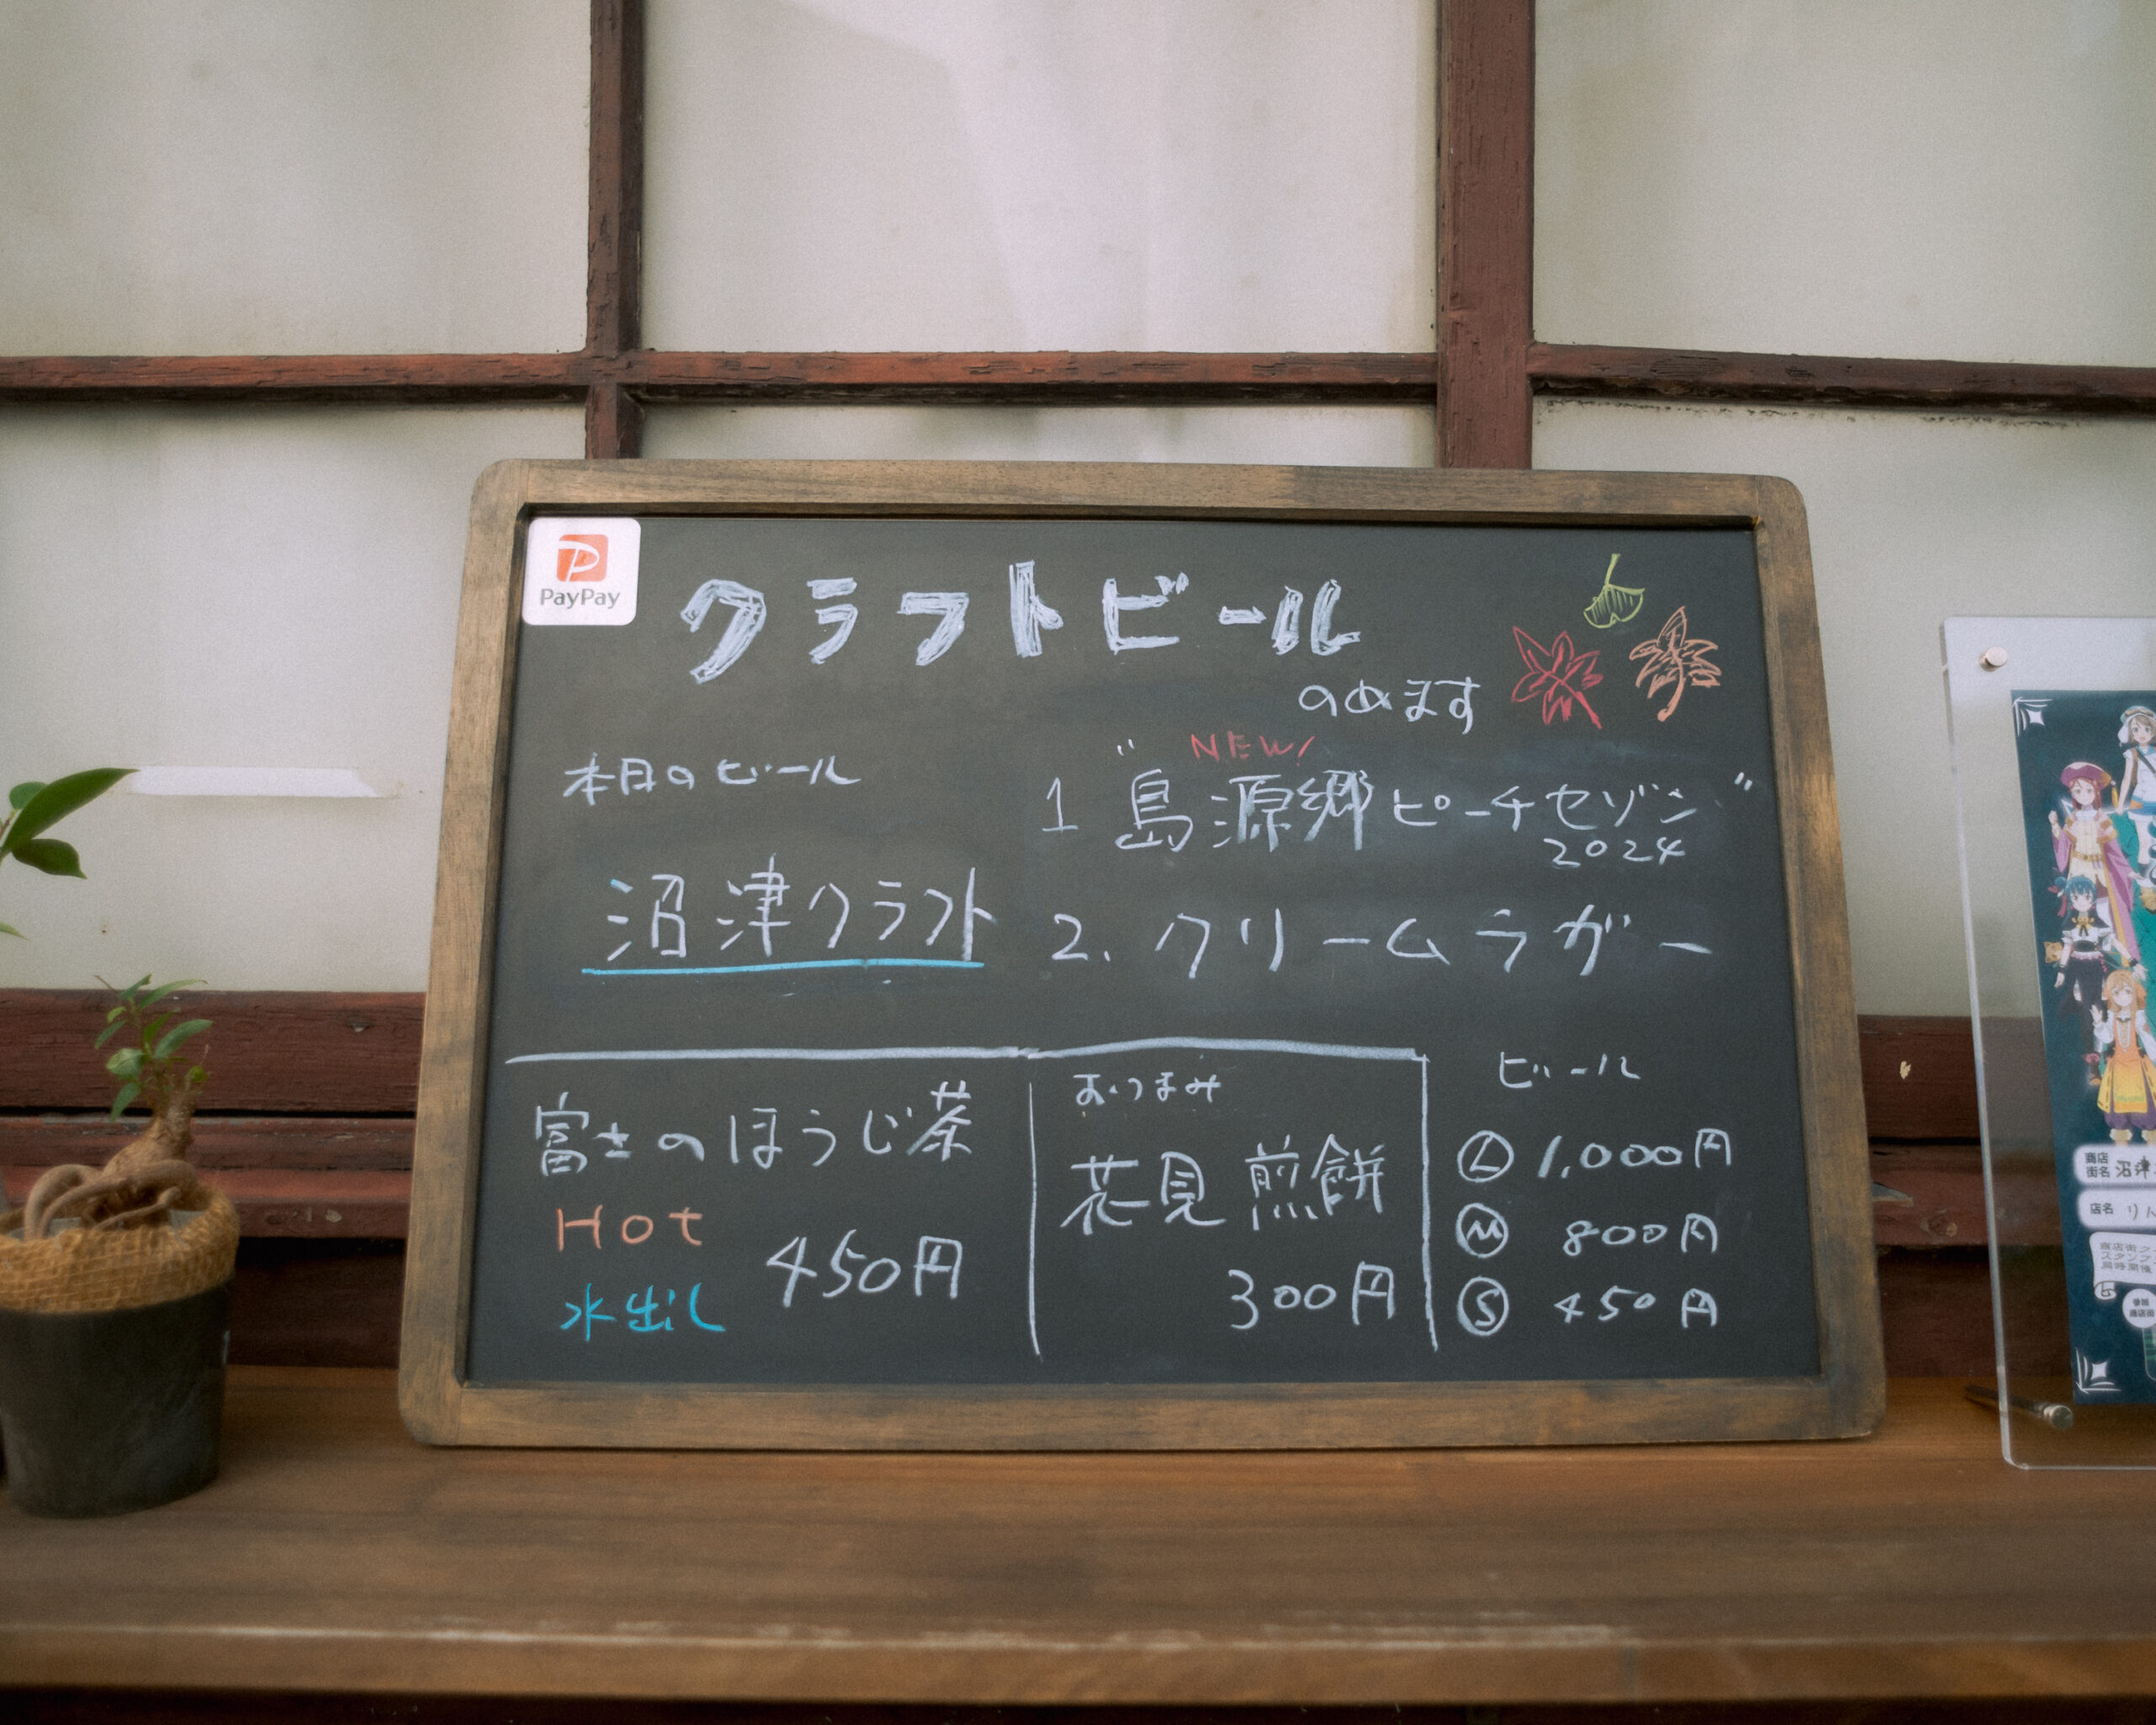 PayPay
クラフトビール
のめます
本日のビール
沼津クラフト
NEW!
1 "島源郷ピーチセゾン"
2024
2. クリームラガー
富士のほうじ茶
Hot
水出し
450円
おつまみ
花見煎餅
300円
ビール
Ⓛ 1,000円
Ⓜ 800円
Ⓢ 450円
商店
街名 沼津
店名 りん
商店街
スタンプ
同時開催
参加
商店街